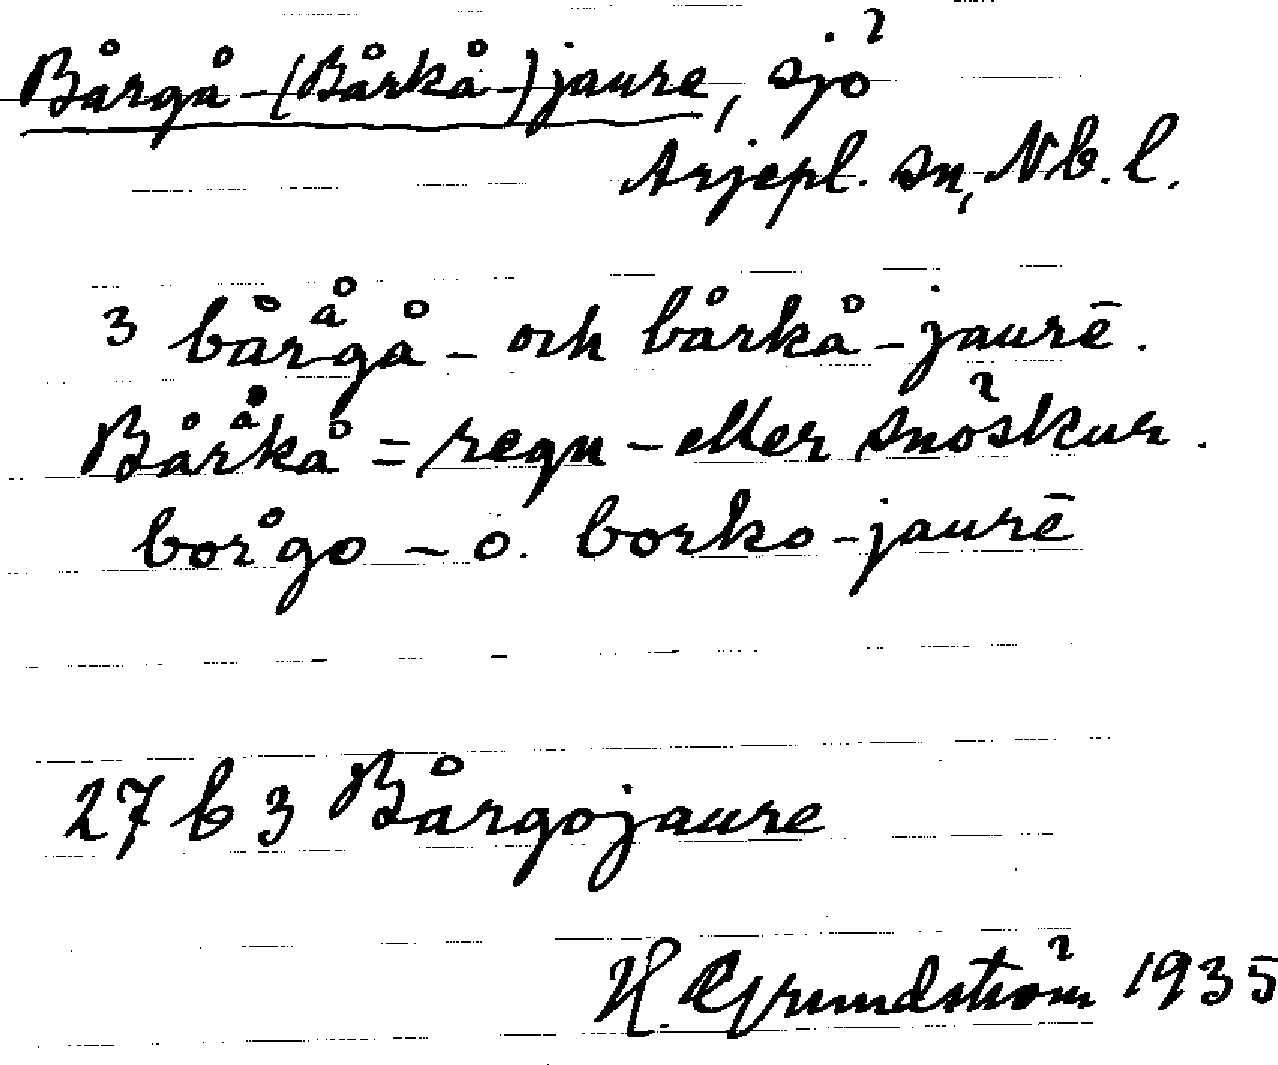 Bårgå-(Bårkå-)jaure, sjö
Arjepl. sn, Nb. l.
3 bårᵃ̊gå- och bårkå-jaurē.
Bårᵃ̊kå = regn- eller snöskur.
bor°go - o. borko-jaurē
27 b 3 Bårgojaure
H. Grundström 1935